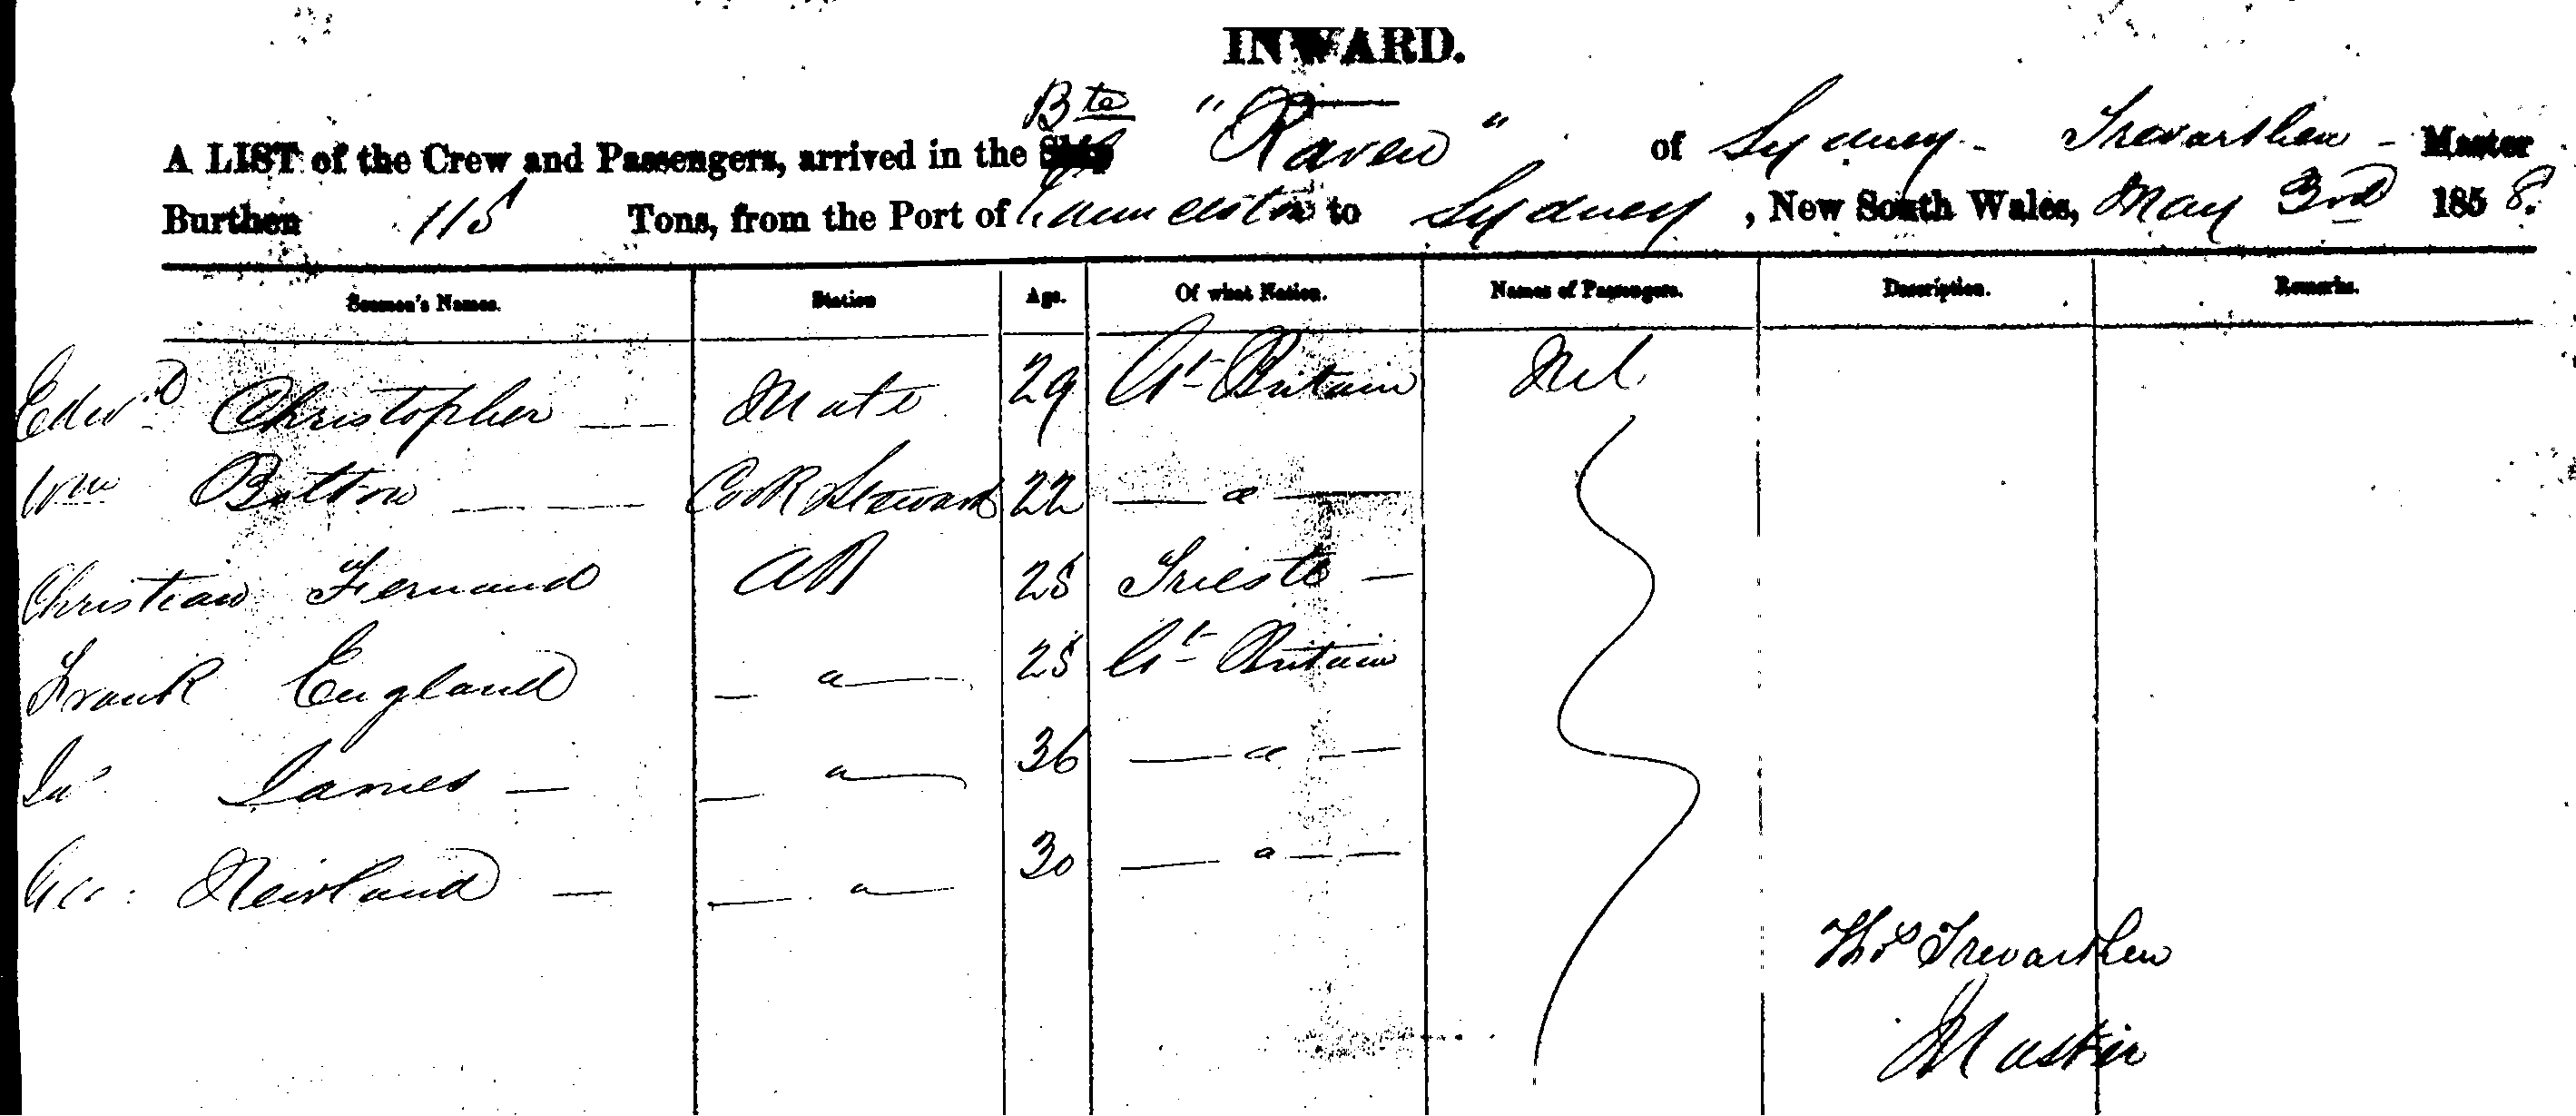 INWARD.
Bte
A LIST of the Crew and Passengers, arrived in the Ship "Raven" of Sydney - Trevarthen - Master
Burthen 115 Tons, from the Port of Launceston to Sydney, New South Wales, May 3rd 1858.
Seamen's Names. Station Age. Of what Nation. Names of Passengers. Description. Remarks.
Edwd Christopher — Mate 29 Gt Britain Nil
Wm Botton — Cook Steward 22 — " —
Christian Fernand AB 25 Trieste —
Frank England — " — 25 Gt Britain
Jno James — — " — 36 — " —
Geo: Newland — — " — 30 — " —
Thos Trevarthen
Master